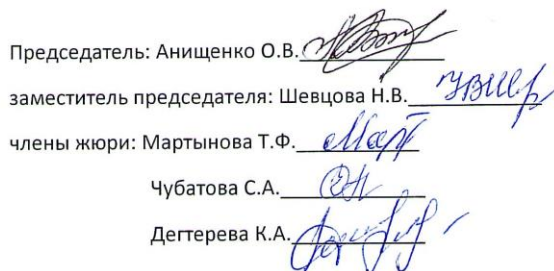 Председатель: Анищенко О.В.
заместитель председателя: Шевцова Н.В.
члены жюри: Мартынова Т.Ф.
Чубатова С.А.
Дегтерева К.А.